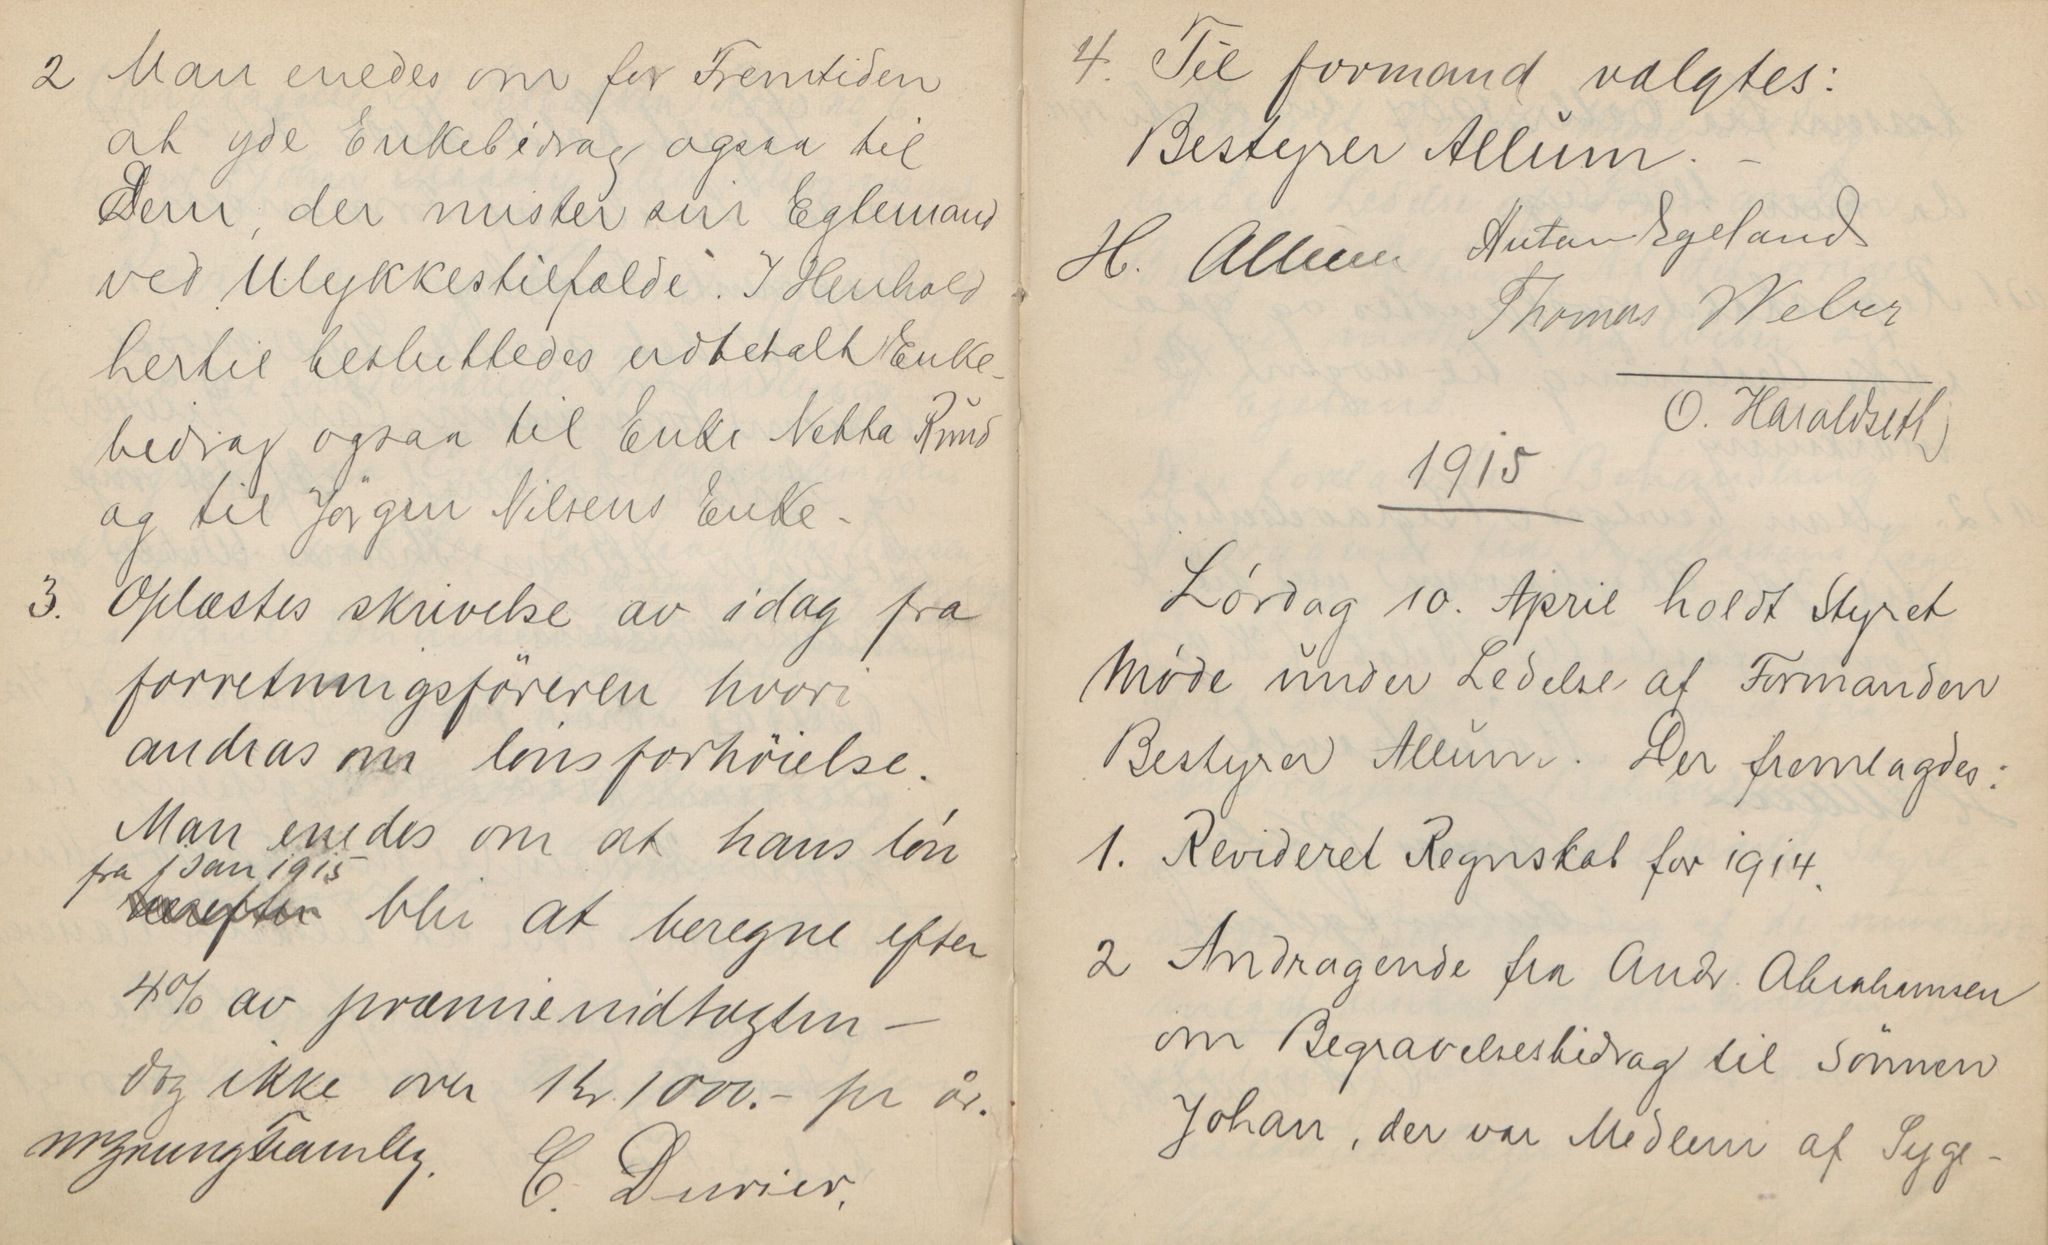 2 Man enedes om for Fremtiden
at yde Enkebidrag ogsaa til
Dem, der mister sin Egtemand
ved Ulykkestilfælde. I Henhold
hertil besluttedes udbetalt Enke-
bidrag ogsaa til Enke Netta Rund
og til Jörgen Nilsens Enke -
3. Oplæstes skrivelse av idag fra
forretningsföreren hvori
andras om lönsforhöielse.
Man enedes om at hans lön
fra 1 Jan 1915
herefter blir at beregne efter
4% av præmieindtægten -
dog ikke over Kr 1000.- pr år.
C. Durier.
4. Til formand valgtes:
Bestyrer Allum. -
H. Allum Anton Egeland
Thomas Weber
O. Haraldseth
1915
Lórdag 10. April holdt Styret
Móde under Ledelse af Formanden
Bestyrer Allum. Der fremlagdes:
1. Revideret Regnskab for 1914.
2 Andragende fra Andr. Abrahamsen
om Begravelsesbidrag til Sönnen
Johan, der var Medlem af Syge-